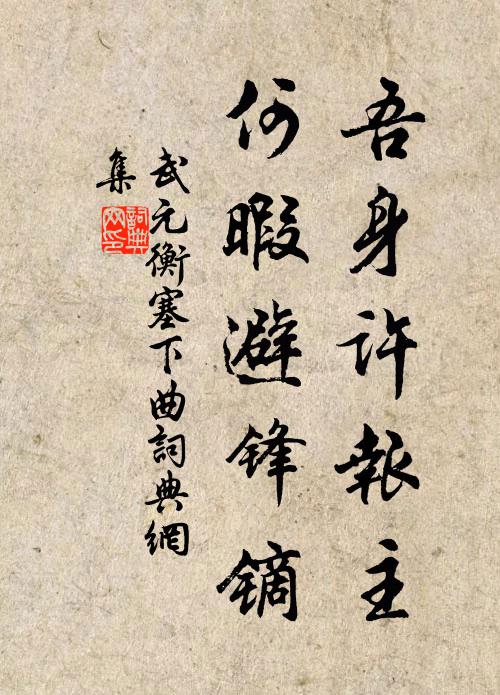 吾身許報主
何暇避鋒鏑
武元衡塞下曲詞典網
集
詞典网印